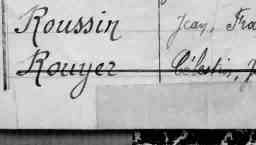 Roussin Jean, Fra
Rouyer Célestin, J